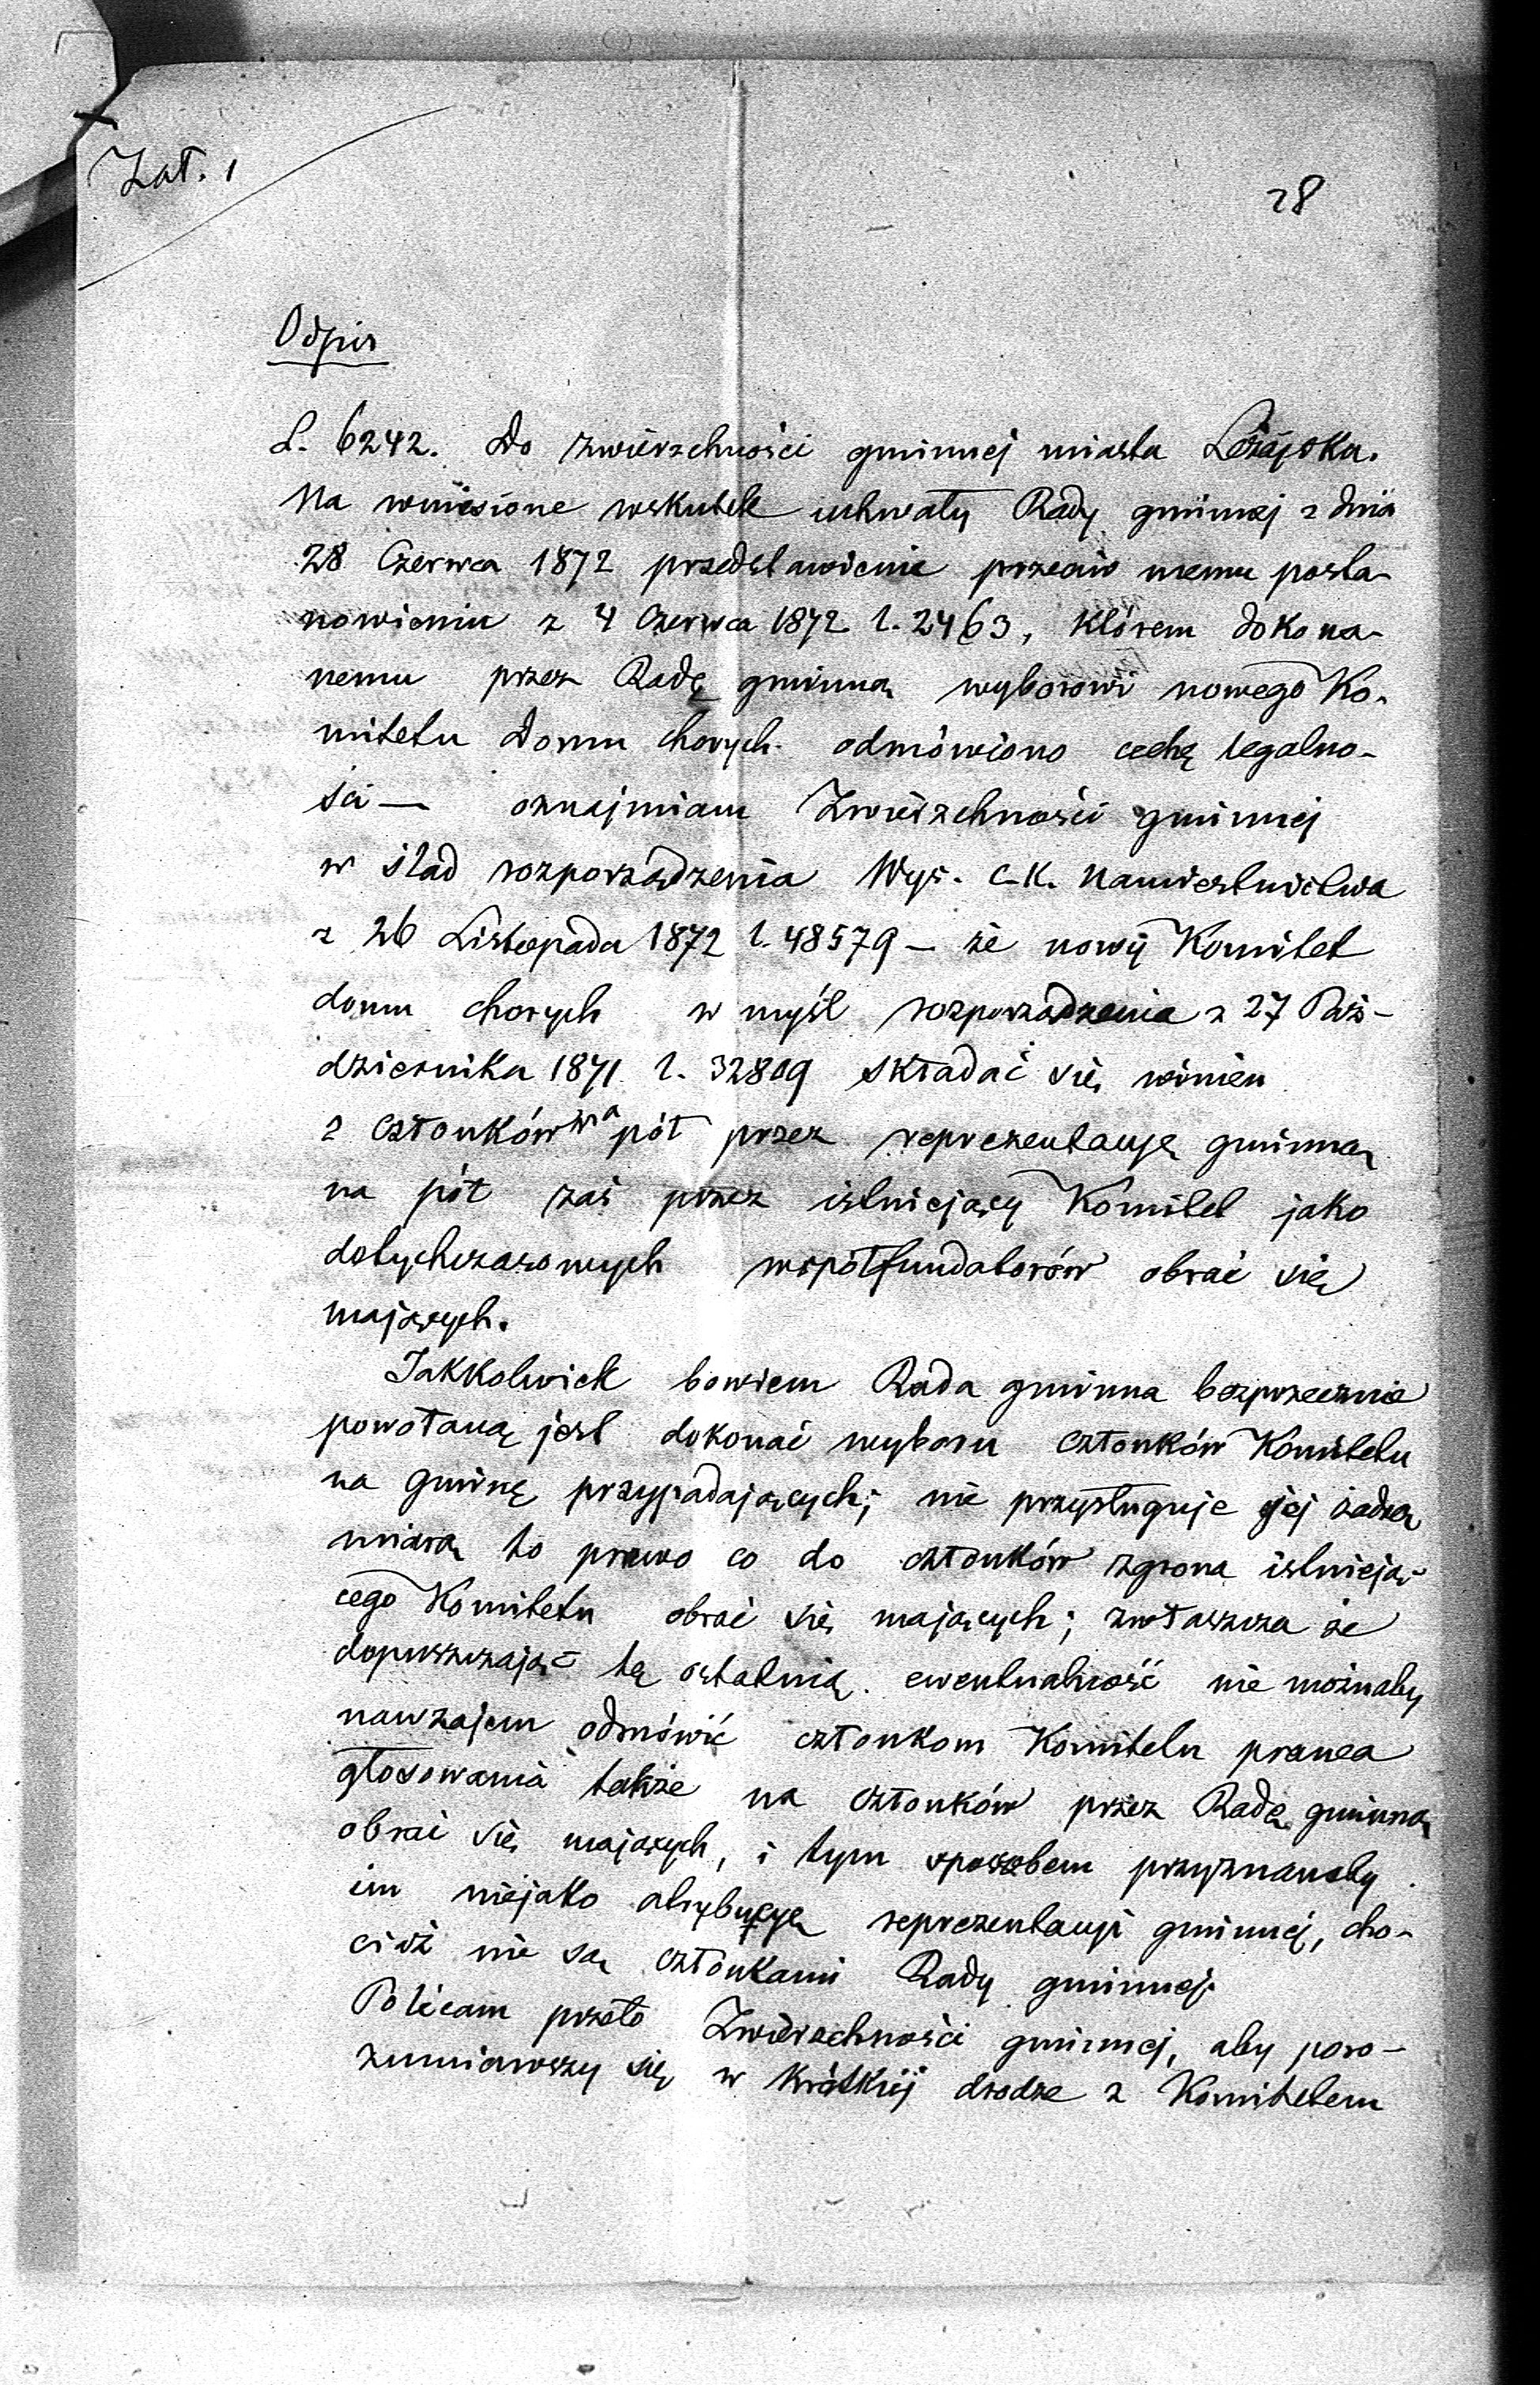 Zał. 1
28
Odpis
L. 6242. Do zwierzchności gminnej miasta Leżajska.
Na wniesione wskutek uchwały Rady gminnej z dnia
28 Czerwca 1872 przedstawienie przeciw memu posta-
nowieniu z 4 Czerwca 1872 l. 2463, którem dokona-
nemu przez Radę gminną wyborowi nowego Ko-
mitetu Domu chorych odmówiono cechę legalno-
ści — oznajmiam Zwierzchności gminnej
w ślad rozporządzenia Wys. c.k. Namiestnictwa
z 26 Listopada 1872 l. 48579 — że nowy Komitet
domu chorych w myśl rozporządzenia z 27 Paź-
dziernika 1871 l. 32809 składać się winien
z członków na pół przez reprezentacyę gminną
na pół zaś przez istniejący Komitet jako
dotychczasowych współfundatorów obrać się
mających.
Jakkolwiek bowiem Rada gminna bezprzecznie
powołaną jest dokonać wyboru członków Komitetu
na gminę przypadających; nie przysługuje jej żadną
miarą to prawo co do członków zgrona istnieją-
cego Komitetu obrać się mających; zwłaszcza że
dopuszczając tą ostatnią ewentualność nie możnaby
nawzajem odmówić członkom Komitetu prawa
głosowania także na członków przez Radę gminną
obrać się mających, i tym sposobem przyznanoby
im niejako atrybucyę reprezentacyi gminnej, cho-
ciaż nie są członkami Rady gminnej.
Polecam przeto Zwierzchności gminnej, aby poro-
zumiawszy się w krótkiéj drodze z Komitetem